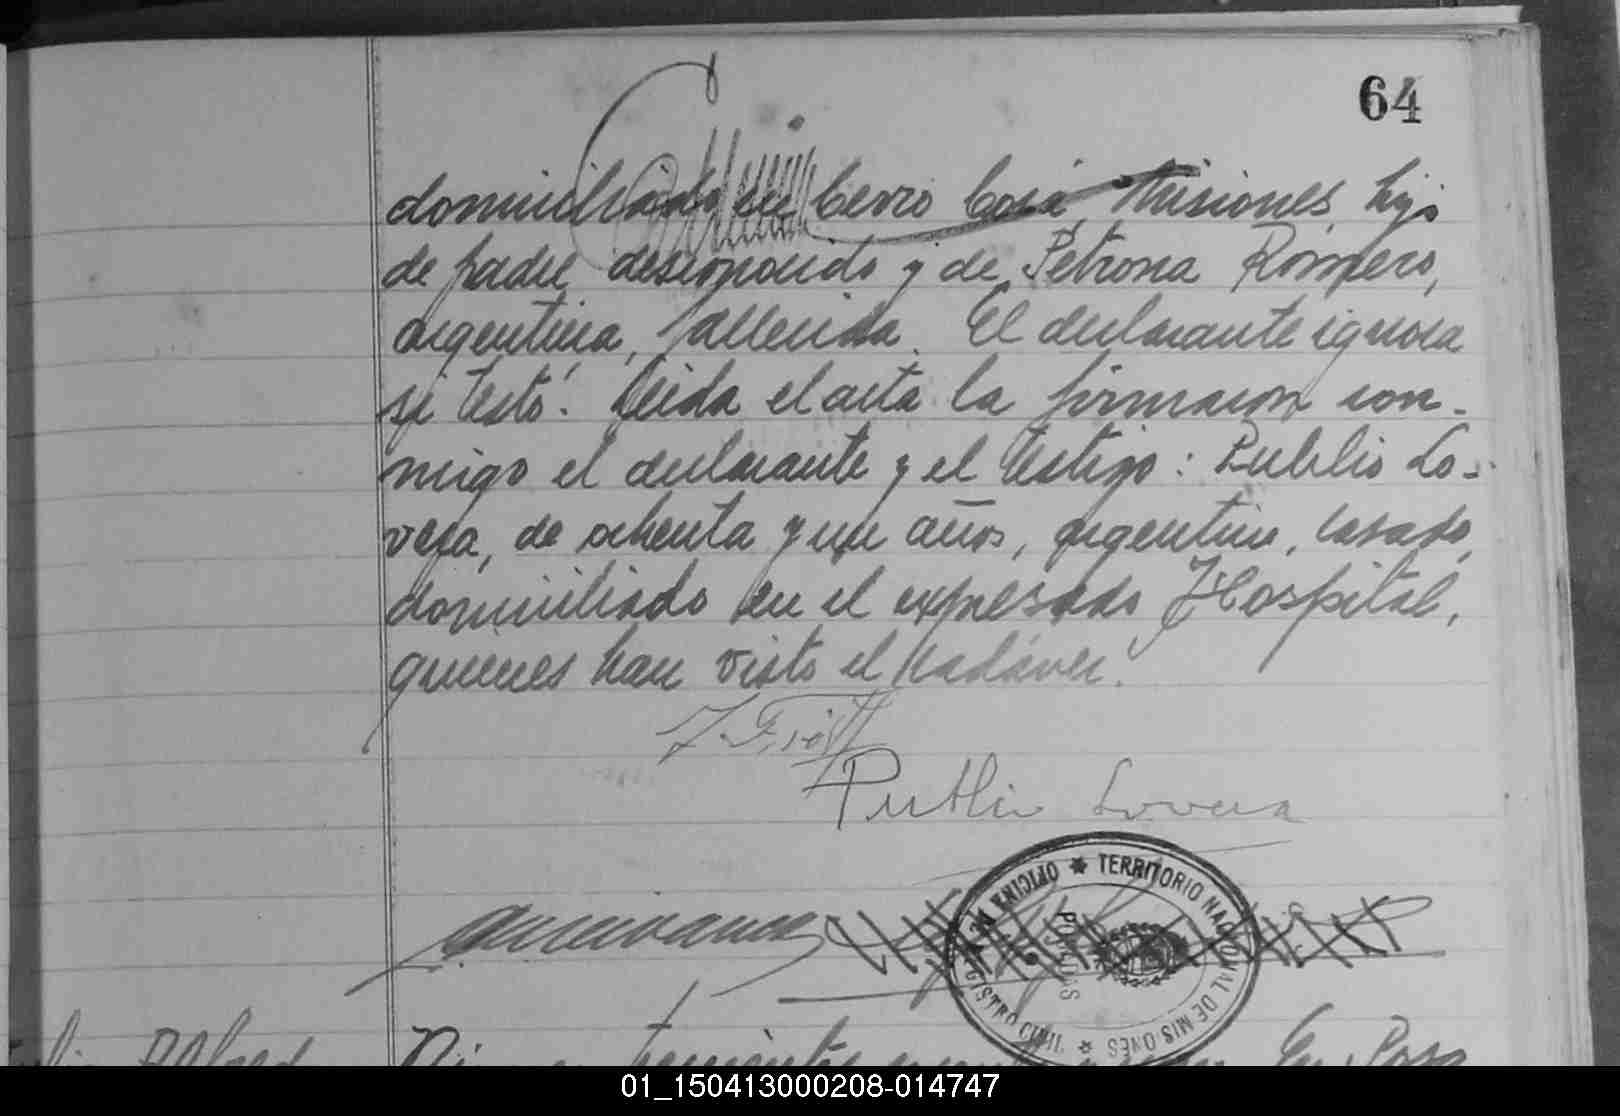 64
domiciliado en Cerro Corá, Misiones, hijo
de padre desconocido y de Petrona Romero,
argentina, fallecida. El declarante ignora
si testó. Leida el acta la firmaron con-
migo el declarante y el testigo: Publio Lo-
vera, de ochenta y un años, argentino, casado,
domiciliado en el expresado Hospital,
quienes han visto el cadáver.
Publio Lovera
OFICINA DE REGISTRO CIVIL ★ TERRITORIO NACIONAL DE MISIONES ★
POSADAS
En Posa
01_150413000208-014747